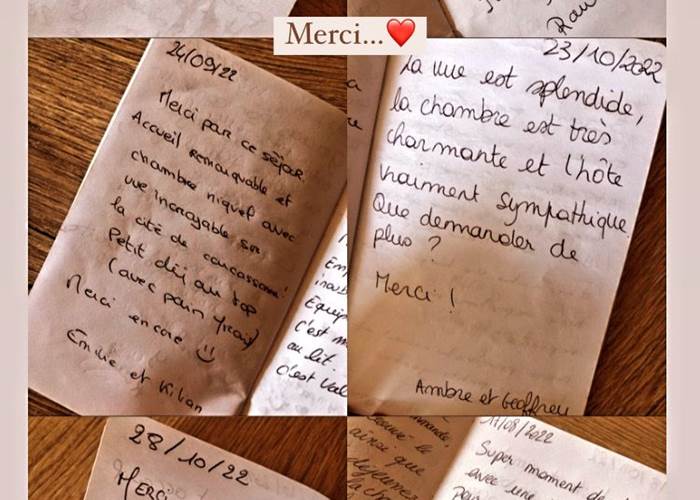 Merci...❤️
24/09/22
Merci par ce séjour.
Accueil remarquable et
chambre niquel avec
vue incroyable sur
la cité de carcassonne!
Petit déj au top
(avec pain frais)
Merci encore :)
Emilie et Kilian
c'est m
au lit.
23/10/2022
La vue est splendide,
la chambre est très
charmante et l'hôte
vraiment sympathique.
Que demander de
plus ?
Merci !
Ambre et Geoffrey
28/10/22
MERCI
ainsi que
11/08/2022
Super moment d
avec une